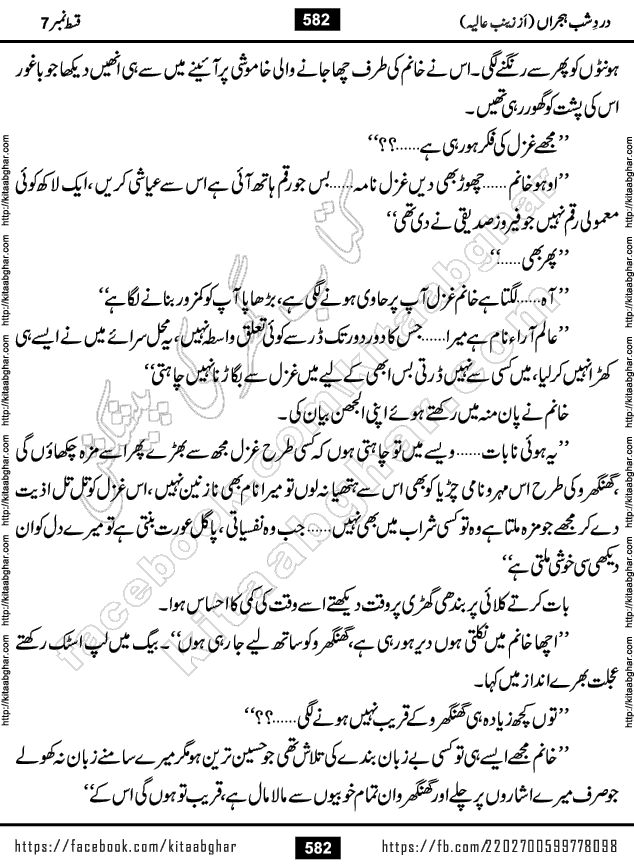 دردِ شب ہجراں (از زینب عالیہ)
582
قسط نمبر 7
ہونٹوں کو پھر سے رنگنے لگی۔ اس نے خانم کی طرف چھا جانے والی خاموشی پر آئینے میں سے ہی انھیں دیکھا جو باغور
اس کی پشت کو گھور رہی تھیں۔
’’مجھے غزل کی فکر ہو رہی ہے……؟؟‘‘
’’اوہو خانم……چھوڑ بھی دیں غزل نامہ……بس جو رقم ہاتھ آئی ہے اس سے عیاشی کریں، ایک لاکھ کوئی
معمولی رقم نہیں جو فیروز صدیقی نے دی تھی‘‘
’’پھر بھی……‘‘
’’آہ……لگتا ہے خانم غزل آپ پر حاوی ہونے لگی ہے، بڑھاپا آپ کو کمزور بنانے لگا ہے‘‘
’’عالم آراء نام ہے میرا……جس کا دور دور تک ڈر سے کوئی تعلق واسطہ نہیں، یہ محل سرائے میں نے ایسے ہی
کھڑا نہیں کر لیا، میں کسی سے نہیں ڈرتی بس ابھی کے لیے میں غزل سے بگاڑنا نہیں چاہتی‘‘
خانم نے پان منہ میں رکھتے ہوئے اپنی الجھن بیان کی۔
’’یہ ہوئی نا بات……ویسے میں تو چاہتی ہوں کہ کسی طرح غزل مجھ سے بھڑے پھر اسے مزہ چکھاؤں گی
،گھنگھرو کی طرح اس مہرو نامی چڑیا کو بھی اس سے ہتھیا نہ لوں تو میرا نام بھی نازنین نہیں، اس غزل کو تل تل اذیت
دے کر مجھے جو مزہ ملتا ہے وہ تو کسی شراب میں بھی نہیں……جب وہ نفسیاتی، پاگل عورت بنتی ہے تو میرے دل کو ان
دیکھی سی خوشی ملتی ہے‘‘
بات کرتے کلائی پر بندھی گھڑی پر وقت دیکھتے اسے وقت کی کمی کا احساس ہوا۔
’’اچھا خانم میں نکلتی ہوں دیر ہو رہی ہے، گھنگھرو کو ساتھ لیے جا رہی ہوں‘‘۔ بیگ میں لپ اسٹک رکھتے
عجلت بھرے انداز میں کہا۔
’’توں کچھ زیادہ ہی گھنگھرو کے قریب نہیں ہونے لگی……؟؟‘‘
’’خانم مجھے ایسے ہی تو کسی بے زبان بندے کی تلاش تھی جو حسین ترین ہو مگر میرے سامنے زبان نہ کھولے
جو صرف میرے اشاروں پر چلے اور گھنگھرو ان تمام خوبیوں سے مالا مال ہے، قریب تو ہوں گی اس کے‘‘
http://kitaabghar.com http://kitaabghar.com http://kitaabghar.com http://kitaabghar.com http://kitaabghar.com http://kitaabghar.com
http://kitaabghar.com http://kitaabghar.com http://kitaabghar.com http://kitaabghar.com http://kitaabghar.com http://kitaabghar.com
کتاب گھر کی پیشکش
facebook.com/kitaabghar
kitaabghar.com
https://facebook.com/kitaabghar
582
https://fb.com/2202700599778098